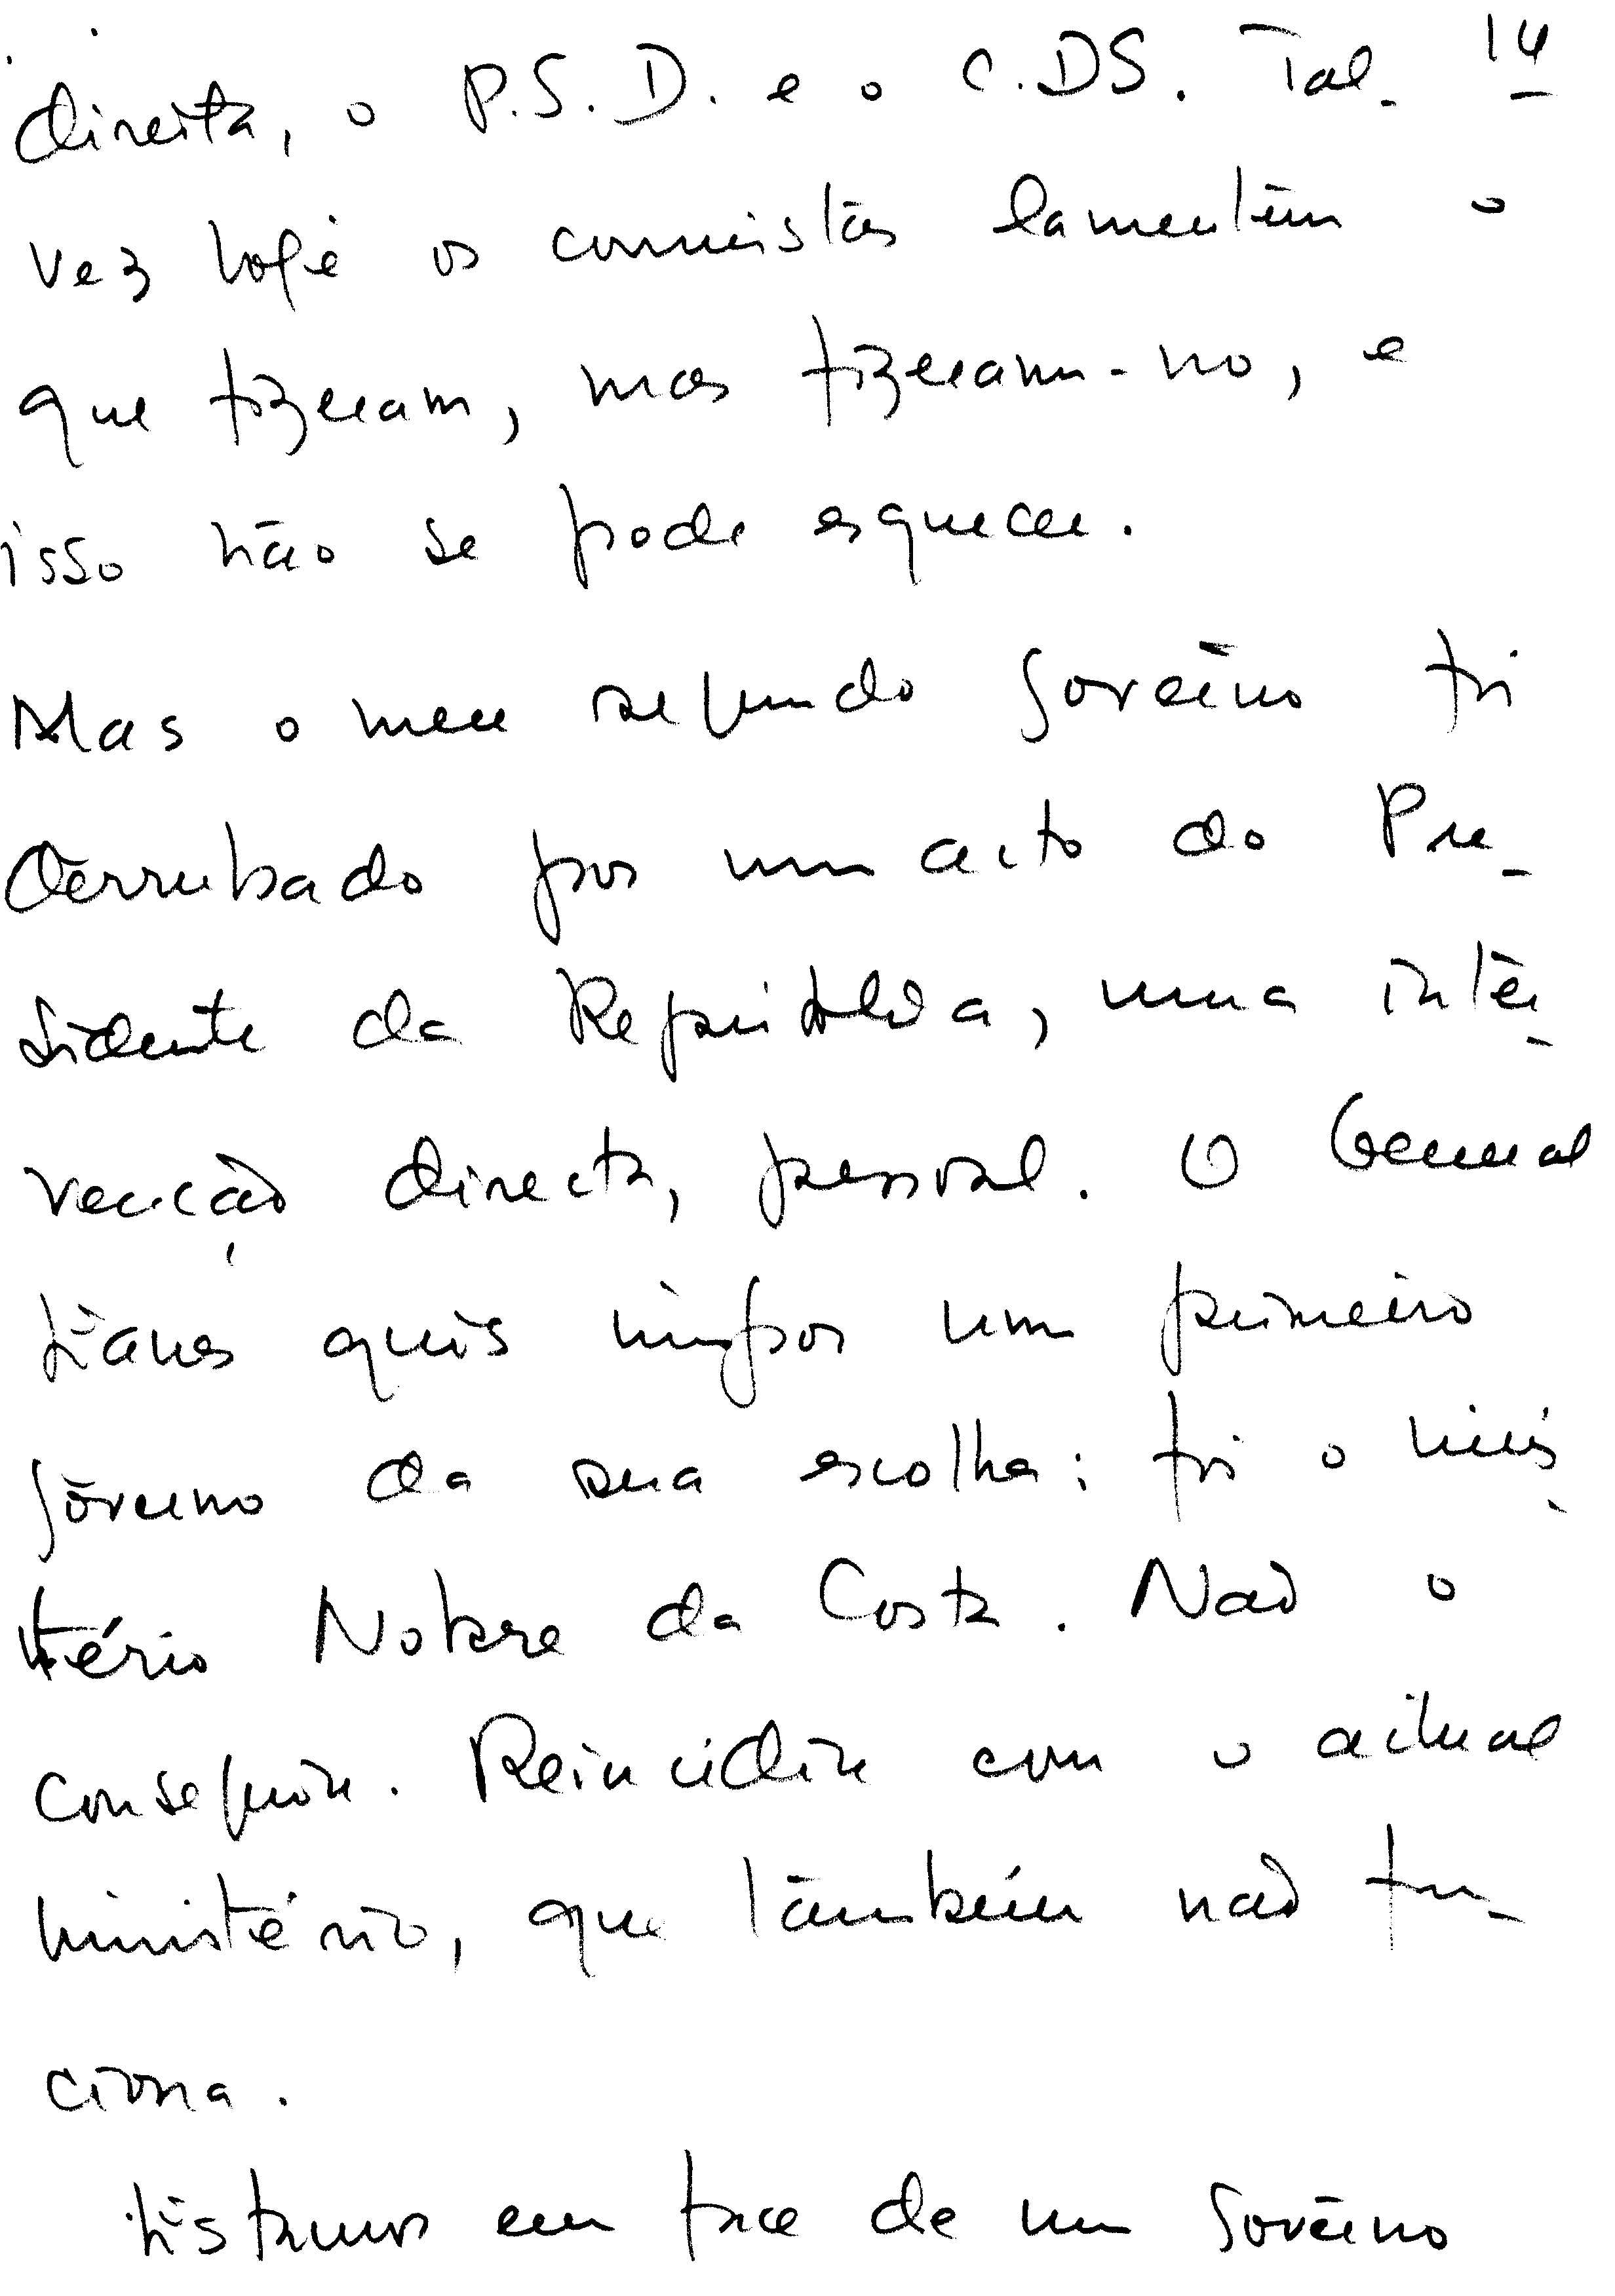 14
direita, o P.S.D. e o C.DS. Tal-
vez hoje os comunistas lamentem o
que fizeram, mas fizeram-no, e
isso não se pode esquecer.
Mas o meu segundo governo foi
derrubado por um acto do Pre-
sidente da República, uma inter-
venção directa, pessoal. O General
Eanes quis impor um primeiro
governo da sua escolha: foi o minis-
tério Nobre da Costa. Não o
conseguiu. Reincidiu com o actual
ministério, que também não fun-
ciona.
Estamos em face de um governo